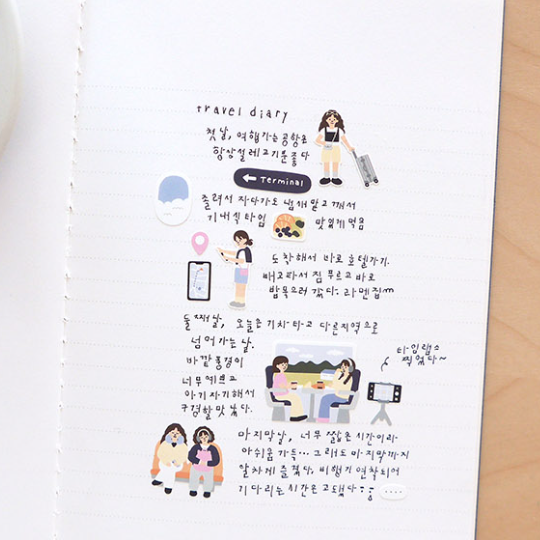 travel diary
첫날, 여행가는 공항은
항상 설레고 기분 좋다
← Terminal
졸려서 자다가도 냄새 맡고 깨서
기내식 타임 맛있게 먹음
도착해서 바로 호텔가기.
배고파서 짐 푸르고 바로
밥 먹으러 갔다- 라멘집
둘쨋날, 오늘은 기차 타고 다른지역으로
넘어가는 날.
바깥 풍경이
너무 예쁘고
아기자기해서
구경할맛 났다.
타임랩스
찍었다~
마지막날, 너무 짧은 시간이라
아쉬움 가득... 그래도 마지막까지
알차게 즐겼다. 비행기 연착되어
기다리는 시간은 고됐다
....